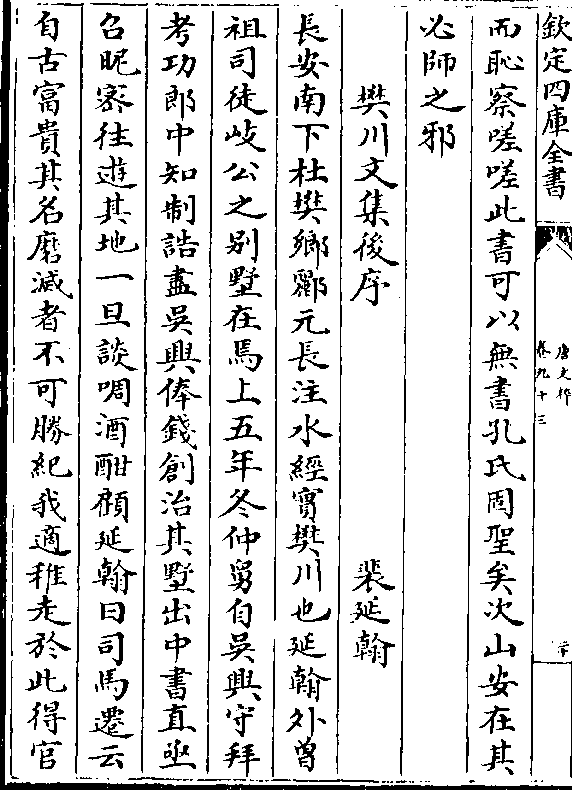 欽定四庫全書
唐文粹
卷九十三
而恥察嗟嗟此書可以無書孔氏固聖矣次山安在其
必師之邪
樊川文集後序 裴延翰
長安南下杜樊鄉酈元長注水經實樊川也延翰外曾
祖司徒岐公之别墅在焉上五年冬仲舅自吳興守拜
考功郎中知制誥盡吳興俸錢創治其墅出中書直亟
召昵宻往遊其地一旦談啁酒酣顧延翰曰司馬遷云
自古富貴其名磨滅者不可勝紀我適稚走於此得官